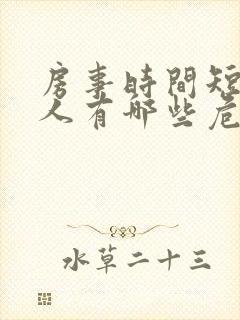 房事時間短
人有哪些危
水草二十三